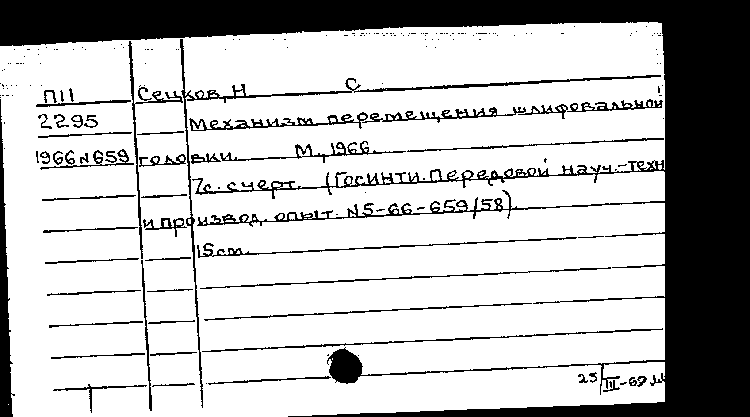 П11 Сецков, Н. С
2295 Механизм перемещения шлифовальной
1966 N 659 головки. М., 1966.
7с. с черт. (ГОСИНТИ. Передовой науч.-техн
и производ. опыт. N5-66-659/58).
15 см.
25/III-67